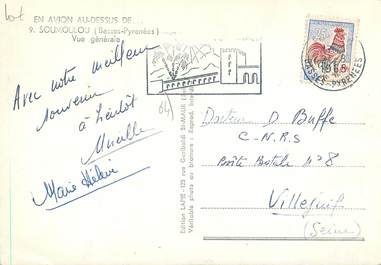 Lot
EN AVION AU-DESSUS DE...
9. SOUMOULOU (Basses-Pyrénées)
Vue générale
Avec notre meilleur
souvenir
à bientôt
Mireille
Marie Hélène
64
Edition LAPIE - 123 rue Garibaldi ST-MAUR
Véritable photo au bromure
BASSES-PYRENEES
Docteur D Buffe
C-N-R-S
Boîte Postale N° 8
Villejuif
(Seine)